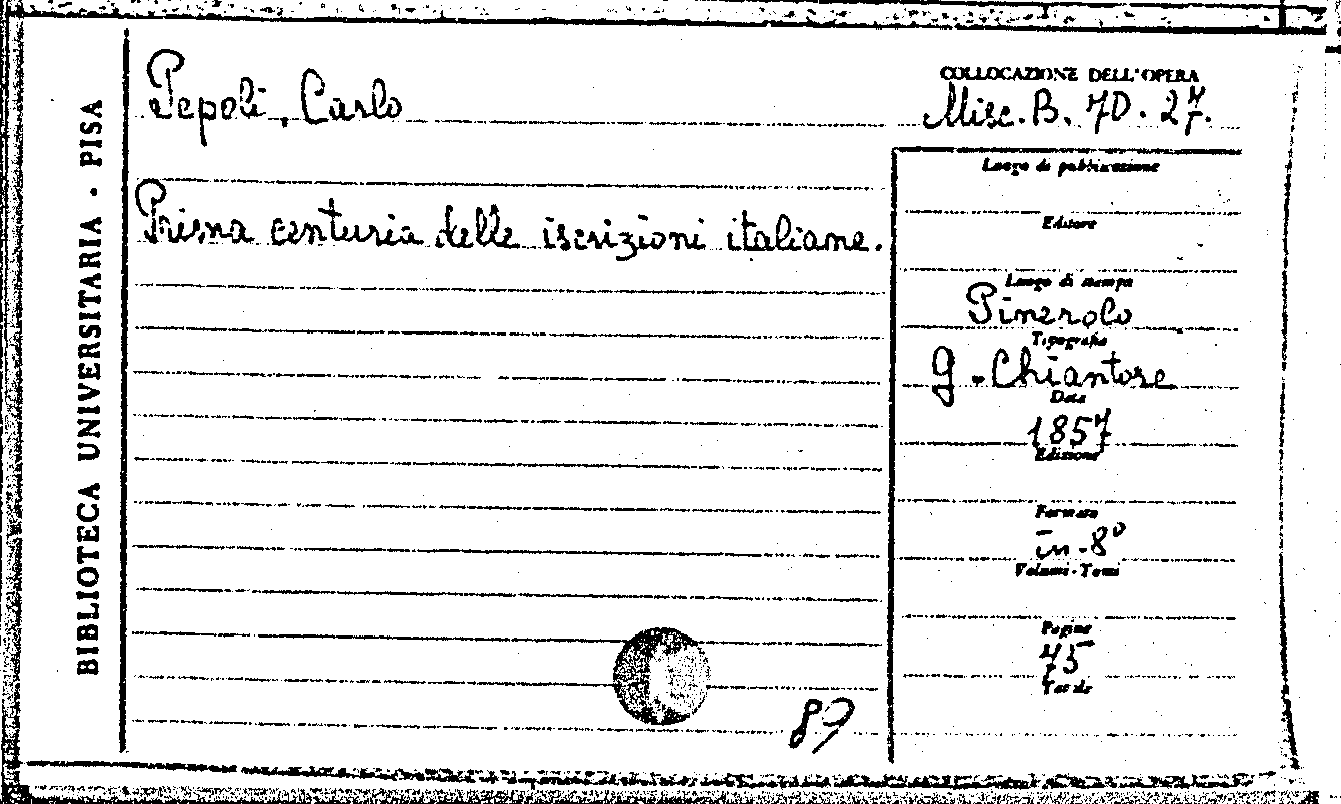 BIBLIOTECA UNIVERSITARIA · PISA
Pepoli, Carlo
Prima centuria delle iscrizioni italiane.
COLLOCAZIONE DELL'OPERA
Misc. B. 70. 27.
Luogo di pubblicazione
Editore
Luogo di stampa
Pinerolo
Tipografia
G. Chiantore
Data
1857
Edizione
Formato
in-8°
Volumi-Tomi
Pagine
75
Tavole
89